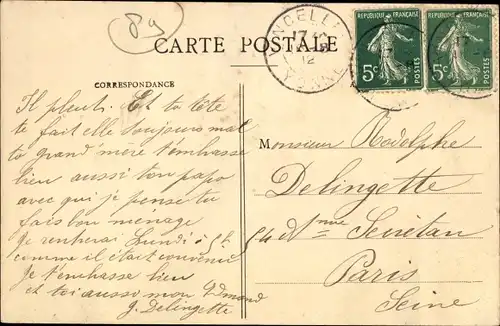 89
CARTE POSTALE
VINCELLES
12
YONNE
REPUBLIQUE FRANÇAISE
5c
POSTES
REPUBLIQUE FRANÇAISE
5c
POSTES
CORRESPONDANCE
Il pleut. Et ta tête
te fait elle toujours mal
ta grand'mère t'embrasse
bien aussi ton papa
avec qui je pense tu
fais bon menage
Je rentrerai Lundi à 5h
comme il était convenu
Je t'embrasse bien
et toi aussi mon Edmond
J. Delingette
Monsieur Rodolphe
Delingette
54 Bd Sérétan
Paris
Seine